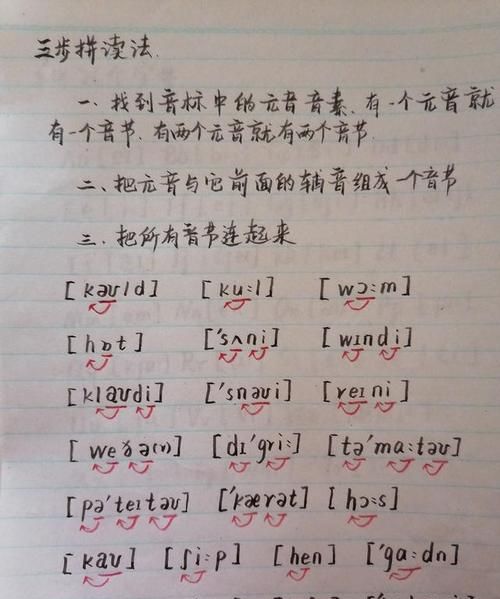 三步拼读法.
一、找到音标中的元音音素、有一个元音就
有一个音节、有两个元音就有两个音节.
二、把元音与它前面的辅音组成一个音节
三、把所有音节连起来
[kəʊld] [ku:l] [wɔ:m]
[hɒt] ['sʌni] [wɪndi]
[klaʊdi] ['snəʊi] [reɪni]
[weðə(r)] [dɪ'gri:] [tə'ma:təʊ]
[pə'teɪtəʊ] ['kærət] [hɔ:s]
[kaʊ] [ʃi:p] [hen] ['ga:dn]